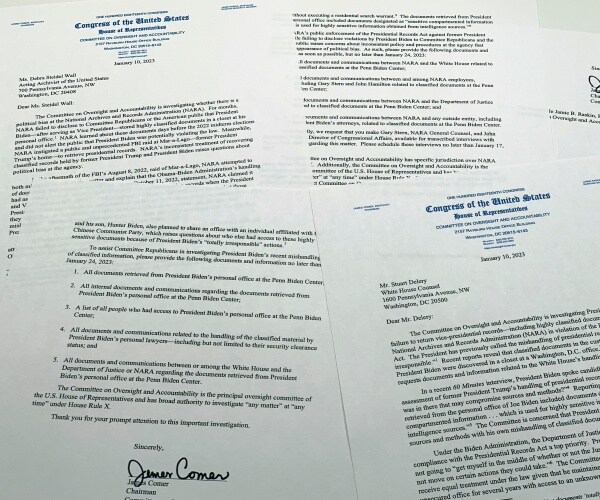 ONE HUNDRED EIGHTEENTH CONGRESS
Congress of the United States
House of Representatives
COMMITTEE ON OVERSIGHT AND ACCOUNTABILITY
2157 RAYBURN HOUSE OFFICE BUILDING
WASHINGTON, DC 20515-6143
January 10, 2023
Ms. Debra Steidel Wall
Acting Archivist of the United States
700 Pennsylvania Avenue, NW
Washington, DC 20408
Dear Ms. Steidel Wall:
The Committee on Oversight and Accountability is investigating whether there is a
political bias at the National Archives and Records Administration (NARA). For months,
NARA failed to disclose to Committee Republicans or the American public that President
Biden—after serving as Vice President—stored highly classified documents in a closet at his
personal office. NARA learned about these documents days before the 2022 midterm elections
and did not alert the public that President Biden was potentially violating the law. Meanwhile,
NARA instigated a public and unprecedented FBI raid at Mar-a-Lago—former President
Trump's home—to retrieve presidential records. NARA's inconsistent treatment of recovering
classified records held by former President Trump and President Biden raises questions about
political bias at the agency.
aftermath of the FBI's August 8, 2022, raid of Mar-a-Lago, NARA attempted to
and explain that the Obama-Biden Administration's handling
11, 2022, statement, NARA claimed it
records when the President
without executing a residential search warrant. The documents retrieved from President
personal office included documents designated as "sensitive compartmented information
is used for highly sensitive information obtained from intelligence sources."
RA's public enforcement of the Presidential Records Act against former President
failing to disclose violations by President Biden to Committee Republicans and the
public raises concerns about inconsistent policy and procedures at the agency that
appearance of political bias. As such, please provide the following documents and
as soon as possible, but no later than January 24, 2023:
documents and communications between NARA and the White House related to
documents at the Penn Biden Center;
documents and communications between and among NARA employees,
including Gary Stern and John Hamilton related to classified documents at the
Center;
documents and communications between NARA and the Department of Justice
to classified documents at the Penn Biden Center; and
documents and communications between NARA and any outside entity, including
Biden's attorneys, related to classified documents at the Penn Biden Center.
we request that you make Gary Stern, NARA General Counsel, and John
Director of Congressional Affairs, available for transcribed interviews with
regarding this matter. Please schedule these interviews no later than January 17,
on Oversight and Accountability has specific jurisdiction over NARA
Additionally, the Committee on Oversight and Accountability is the
committee of the U.S. House of Representatives and has broad authority to
at "any time" under House Rule X.
Jamie B. Raskin,
and his son, Hunter Biden, also planned to share an office with an individual affiliated with
Chinese Communist Party, which raises questions about who had access to these highly
sensitive documents because of President Biden's "totally irresponsible" actions.
To assist Committee Republicans in investigating President Biden's recent mishandling
of classified information, please provide the following documents and information no later than
January 24, 2023:
1. All documents retrieved from President Biden's personal office at the Penn Biden Center;
2. All internal documents and communications regarding the documents retrieved from
President Biden's personal office at the Penn Biden Center;
3. A list of all people who had access to President Biden's personal office at the Penn Biden
Center;
4. All documents and communications related to the handling of the classified material by
President Biden's personal lawyers—including but not limited to their security clearance
status; and
5. All documents and communications between or among the White House and the
Department of Justice or NARA regarding the documents retrieved from President
Biden's personal office at the Penn Biden Center.
The Committee on Oversight and Accountability is the principal oversight committee of
the U.S. House of Representatives and has broad authority to investigate "any matter" at "any
time" under House Rule X.
Thank you for your prompt attention to this important investigation.
Sincerely,
James Comer
James Comer
Chairman
ONE HUNDRED EIGHTEENTH CONGRESS
Congress of the United States
House of Representatives
COMMITTEE ON OVERSIGHT AND ACCOUNTABILITY
2157 RAYBURN HOUSE OFFICE BUILDING
WASHINGTON, DC 20515-6143
January 10, 2023
Mr. Stuart Delery
White House Counsel
1600 Pennsylvania Avenue, NW
Washington, DC 20500
Dear Mr. Delery:
The Committee on Oversight and Accountability is investigating
failure to return vice-presidential records—including highly classified
National Archives and Records Administration (NARA) in violation of the
Act. The President has previously called the mishandling of presidential
irresponsible." Recent reports reveal that classified documents in the
President Biden were discovered in a closet in a Washington, D.C. office.
requests documents and information related to the White House's
In a recent 60 Minutes interview, President Biden spoke
assessment of former President Trump's handling of presidential
was in there that may compromise sources and methods?" Reporting
retrieved from the personal office of Joe Biden included documents
compartmented information . . . which is used for highly sensitive
intelligence sources." The Committee is concerned that President
sources and methods with his own mishandling of classified
Under the Biden Administration, the Department of Justice
compliance with the Presidential Records Act a top priority.
not going to "get myself in the middle of whether or not the
not move on certain actions they could take." The Committee
receive equal treatment under the law given that he maintained
unsecured office for several years with access to an unknown